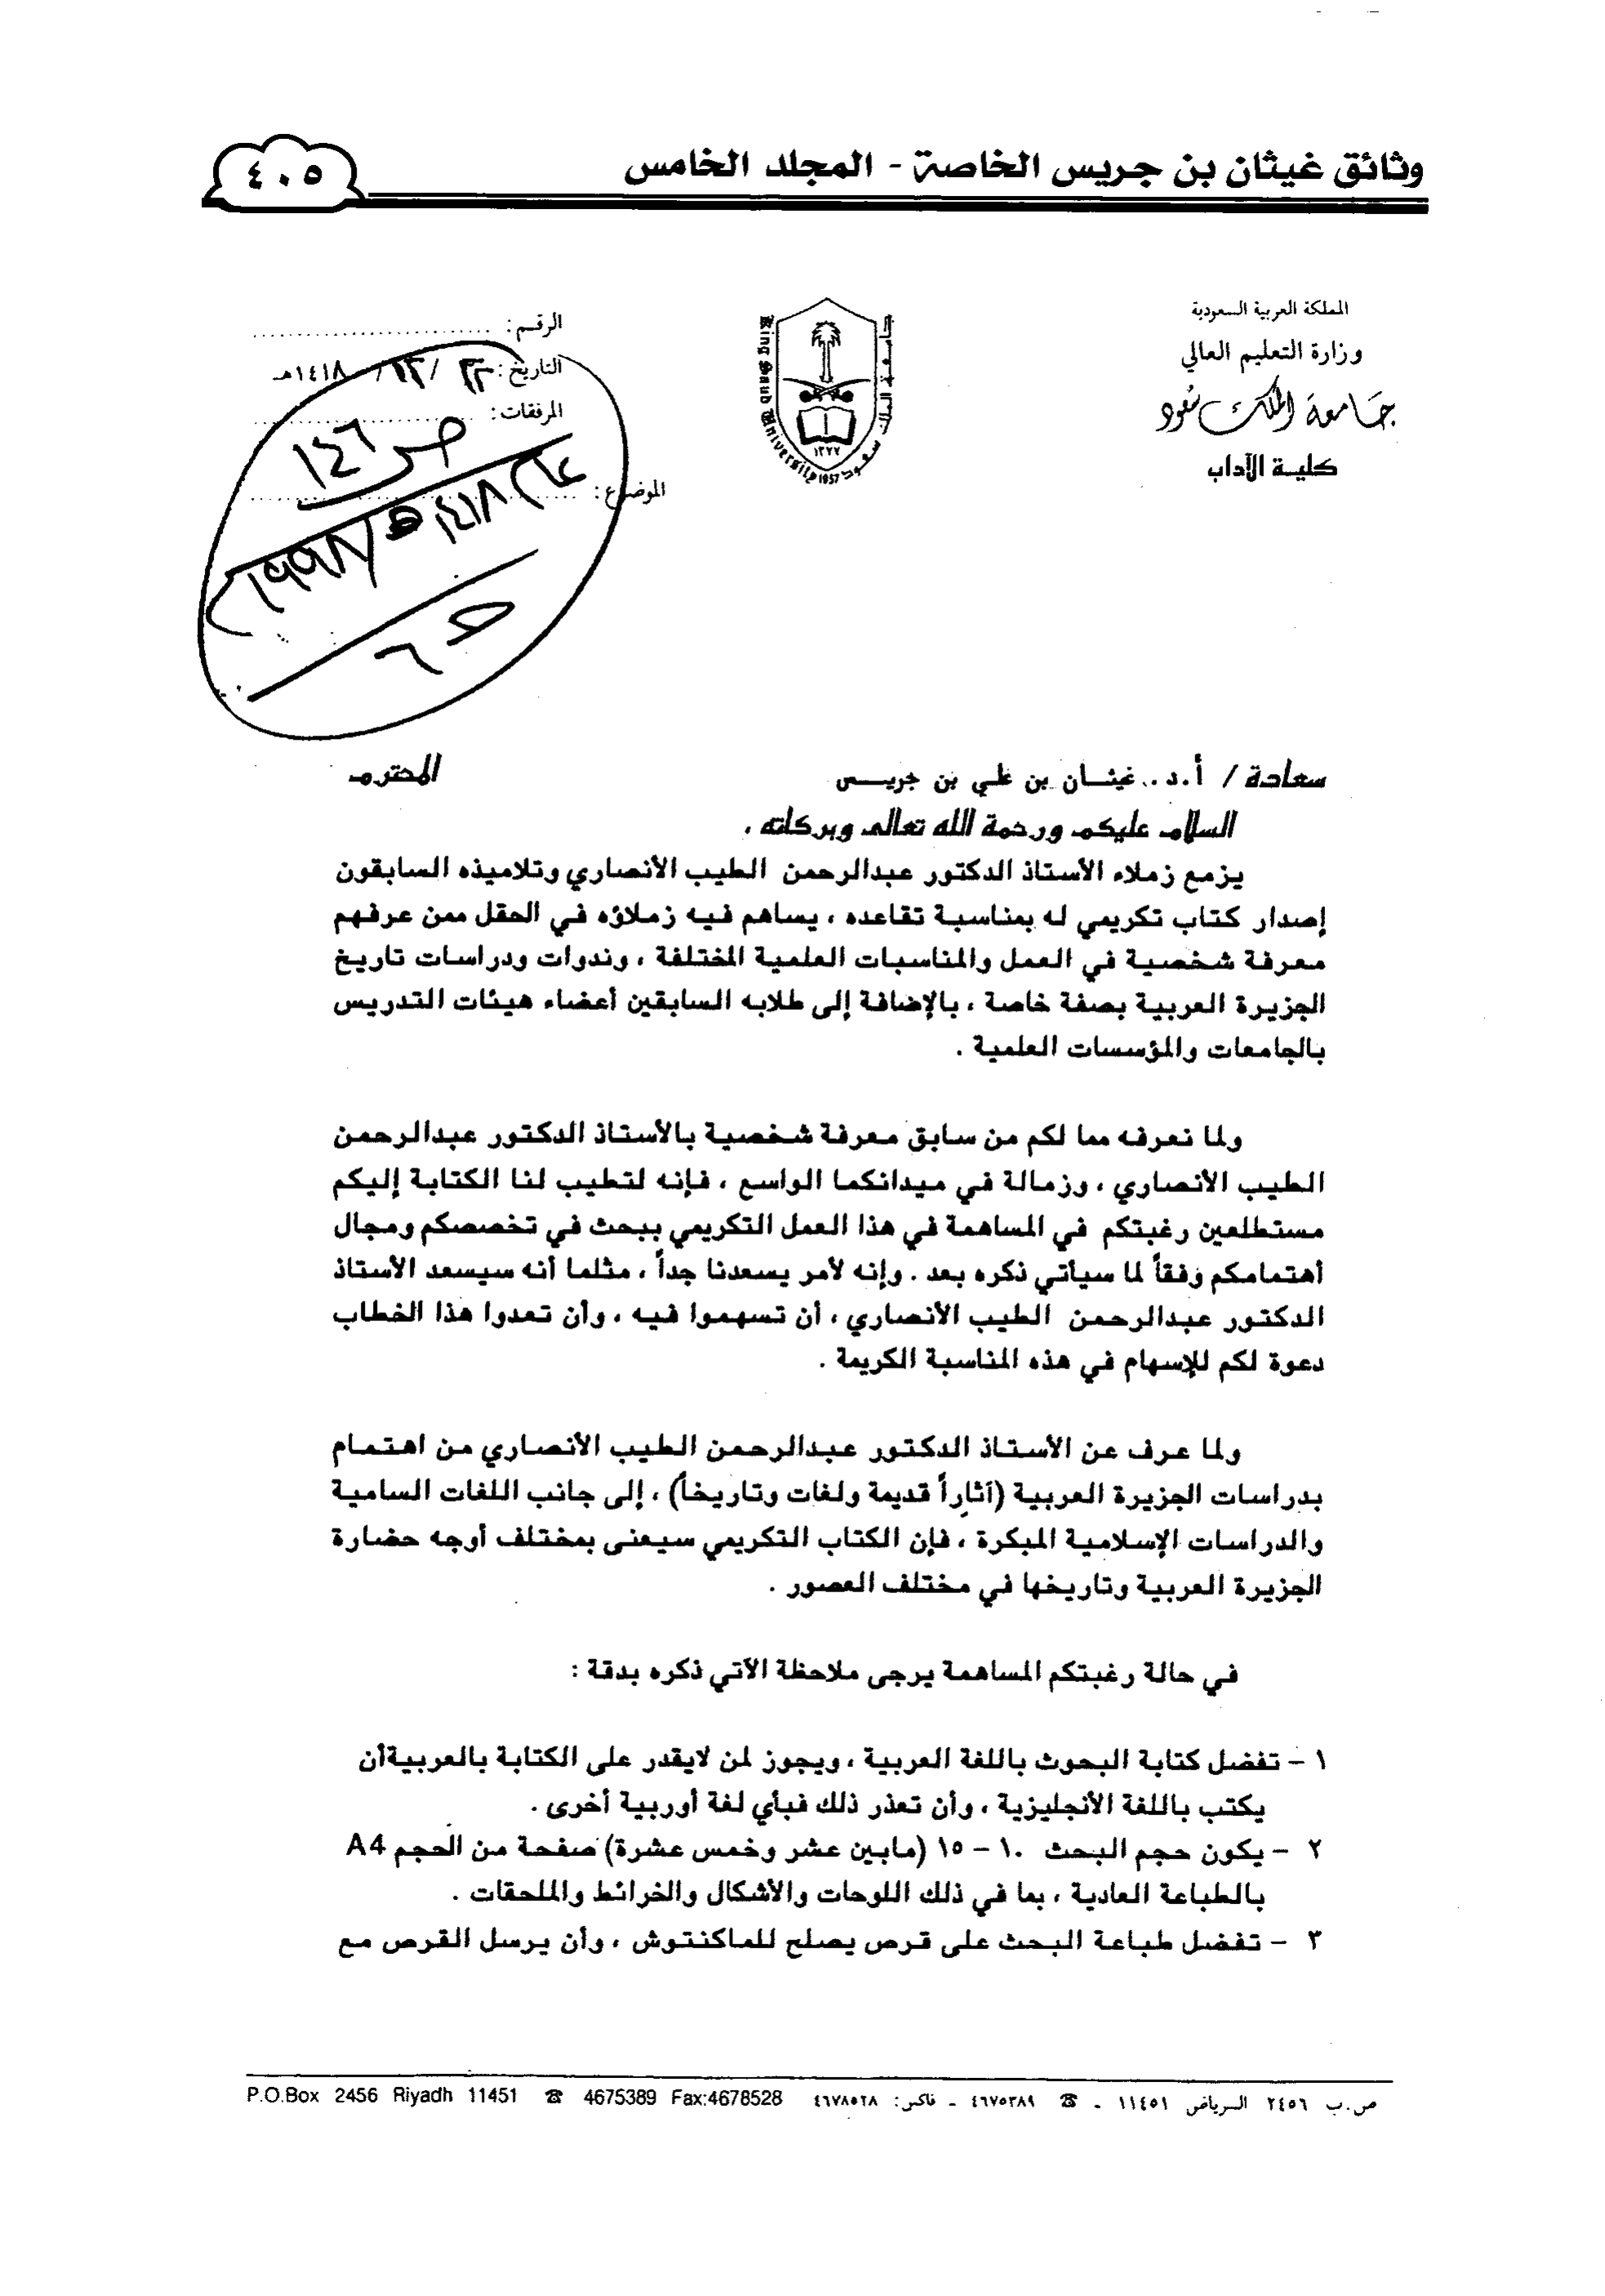 وثائق غيثان بن جريس الخاصة - المجلد الخامس
٤٠٥
المملكة العربية السعودية
وزارة التعليم العالي
جامعة الملك سعود
كلية الآداب
جامعة الملك سعود
King Saud University
١٣٧٧
1957
الرقم :
التاريخ : ٢٢ / ١٢ / ١٤١٨هـ
المرفقات :
الموضوع :
ص ١٤٦
١٤١٨هـ / ١٩٩٨
سعادة / أ.د. غيثــان بن علي بن جريــس المحترم
السلام عليكم ورحمة الله تعالى وبركاته ،
يزمع زملاء الأستاذ الدكتور عبدالرحمن الطيب الأنصاري وتلاميذه السابقون
إصدار كتاب تكريمي له بمناسبة تقاعده ، يساهم فيه زملاؤه في الحقل ممن عرفهم
معرفة شخصية في العمل والمناسبات العلمية المختلفة ، وندوات ودراسات تاريخ
الجزيرة العربية بصفة خاصة ، بالإضافة إلى طلابه السابقين أعضاء هيئات التدريس
بالجامعات والمؤسسات العلمية .
ولما نعرفه مما لكم من سابق معرفة شخصية بالأستاذ الدكتور عبدالرحمن
الطيب الأنصاري ، وزمالة في ميدانكما الواسع ، فإنه لتطيب لنا الكتابة إليكم
مستطلعين رغبتكم في المساهمة في هذا العمل التكريمي ببحث في تخصصكم ومجال
أهتمامكم وفقاً لما سيأتي ذكره بعد . وإنه لأمر يسعدنا جداً ، مثلما أنه سيسعد الأستاذ
الدكتور عبدالرحمن الطيب الأنصاري ، أن تسهموا فيه ، وأن تعدوا هذا الخطاب
دعوة لكم للإسهام في هذه المناسبة الكريمة .
ولما عرف عن الأستاذ الدكتور عبدالرحمن الطيب الأنصاري من اهتمام
بدراسات الجزيرة العربية (آثاراً قديمة ولغات وتاريخاً) ، إلى جانب اللغات السامية
والدراسات الإسلامية المبكرة ، فإن الكتاب التكريمي سيعنى بمختلف أوجه حضارة
الجزيرة العربية وتاريخها في مختلف العصور .
في حالة رغبتكم المساهمة يرجى ملاحظة الآتي ذكره بدقة :
١ - تفضل كتابة البحوث باللغة العربية ، ويجوز لمن لايقدر على الكتابة بالعربيةأن
يكتب باللغة الأنجليزية ، وأن تعذر ذلك فبأي لغة أوربية أخرى .
٢ - يكون حجم البحث ١٠ - ١٥ (مابين عشر وخمس عشرة) صفحة من الحجم A4
بالطباعة العادية ، بما في ذلك اللوحات والأشكال والخرائط والملحقات .
٣ - تفضل طباعة البحث على قرص يصلح للماكنتوش ، وأن يرسل القرص مع
ص.ب ٢٤٥٦ الرياض ١١٤٥١ - ☎ ٤٦٧٥٣٨٩ - فاكس: ٤٦٧٨٥٢٨ P.O.Box 2456 Riyadh 11451 ☎ 4675389 Fax:4678528